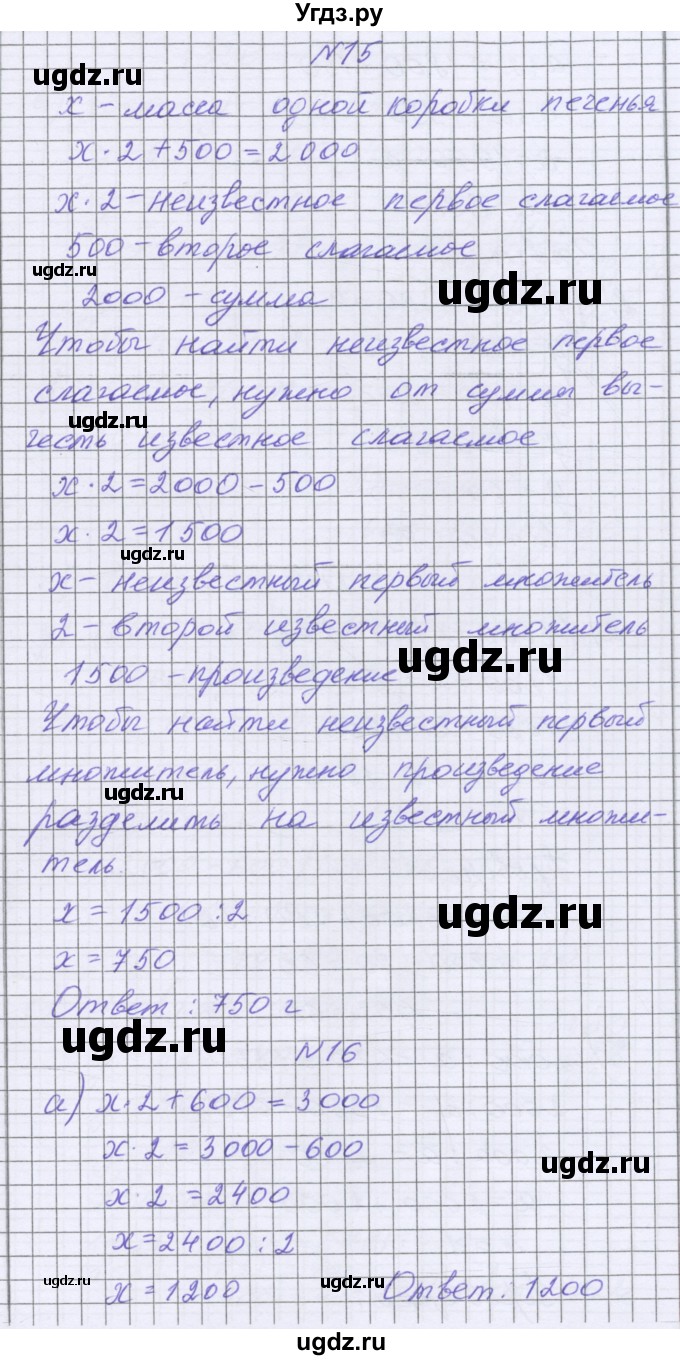 Угдз.ру
№15
ugdz.ru
x - масса одной коробки печенья
x · 2 + 500 = 2000
x · 2 - неизвестное первое слагаемое
500 - второе слагаемое
ugdz.ru
2000 - сумма
ugdz.ru
Чтобы найти неизвестное первое
слагаемое, нужно от суммы вы-
ugdz.ru
честь известное слагаемое
x · 2 = 2000 - 500
x · 2 = 1500
ugdz.ru
x - неизвестный первый множитель
2 - второй известный множитель
ugdz.ru
1500 - произведение
Чтобы найти неизвестный первый
множитель, нужно произведение
ugdz.ru
разделить на известный множи-
тель.
x = 1500 : 2
ugdz.ru
x = 750
Ответ : 750 г
ugdz.ru
№16
а) x · 2 + 600 = 3000
x · 2 = 3000 - 600
ugdz.ru
x · 2 = 2400
x = 2400 : 2
ugdz.ru
ugdz.ru
x = 1200 Ответ : 1200
ugdz.ru